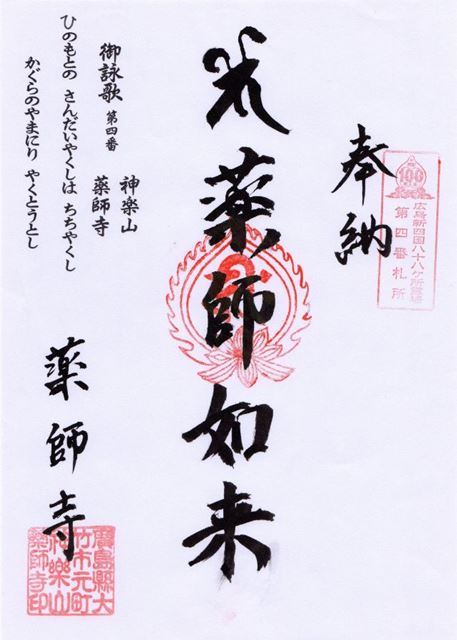 100
広島新四国八十八ヶ所霊場
第四番札所
奉納
薬師如来
御詠歌 第四番
神楽山
薬師寺
ひのもとの さんだいやくしは ちちやくし
かぐらのやまにり やくとうとし
薬師寺
廣島縣大
竹市元町
神樂山
薬師寺印